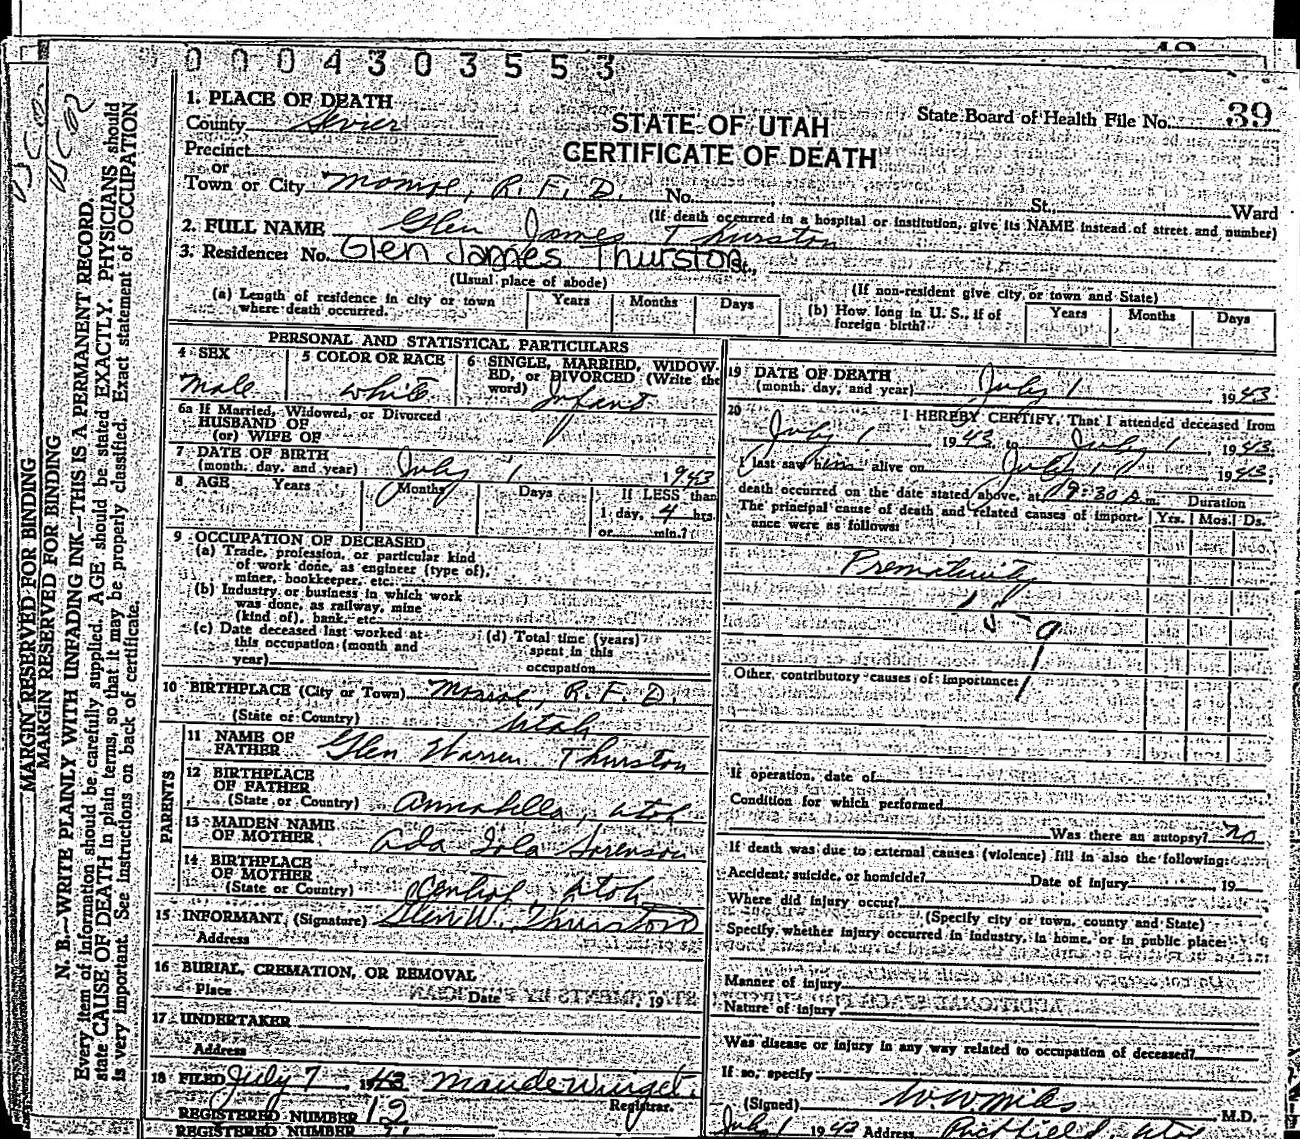 0 0 0 4 3 0 3 5 5 3
1. PLACE OF DEATH
County Sevier
STATE OF UTAH
CERTIFICATE OF DEATH
State Board of Health File No. 39
Precinct
or
Town or City Monroe, R. F. D. No. St., Ward
(If death occurred in a hospital or institution, give its NAME instead of street and number)
2. FULL NAME Glen James Thurston
3. Residence: No. Glen James Thurston St.,
(Usual place of abode)
(If non-resident give city, or town and State)
(a) Length of residence in city or town where death occurred. Years Months Days
(b) How long in U. S., if of foreign birth? Years Months Days
PERSONAL AND STATISTICAL PARTICULARS
4 SEX
male
5 COLOR OR RACE
white
6 SINGLE, MARRIED, WIDOW-
ED, or DIVORCED (Write the
word) Infant
6a If Married, Widowed, or Divorced
HUSBAND OF
(or) WIFE OF
7 DATE OF BIRTH
(month, day, and year) July 1 1943
8 AGE Years Months Days If LESS than
1 day, 4 hrs.
or min.?
9 OCCUPATION OF DECEASED
(a) Trade, profession, or particular kind
of work done, as engineer (type of),
miner, bookkeeper, etc.
(b) Industry or business in which work
was done, as railway, mine
(kind of), bank, etc.
(c) Date deceased last worked at
this occupation (month and
year)
(d) Total time (years)
spent in this
occupation
10 BIRTHPLACE (City or Town) Monroe, R. F. D.
(State or Country) Utah
PARENTS
11 NAME OF
FATHER Glen Warren Thurston
12 BIRTHPLACE
OF FATHER
(State or Country) Annabella, Utah
13 MAIDEN NAME
OF MOTHER Ada Iola Sorenson
14 BIRTHPLACE
OF MOTHER
(State or Country) Central, Utah
15 INFORMANT, (Signature) Glen W. Thurston
Address
16 BURIAL, CREMATION, OR REMOVAL
Place Date , 19
17 UNDERTAKER
Address
18 FILED July 7, 1943
Registrar.
REGISTERED NUMBER 12
REGISTERED NUMBER
19 DATE OF DEATH
(month, day, and year) July 1, 1943
20 I HEREBY CERTIFY, That I attended deceased from
July 1, 1943, to July 1, 1943.
I last saw him alive on July 1, 1943.
death occurred on the date stated above, at 9:30 A m. Duration
The principal cause of death and related causes of import-
ance were as follows: Yrs. Mos. Ds.
Prematurity
159
Other contributory causes of importance:
If operation, date of
Condition for which performed
Was there an autopsy? no
If death was due to external causes (violence) fill in also the following:
Accident, suicide, or homicide? Date of injury 19
Where did injury occur?
(Specify city or town, county and State)
Specify whether injury occurred in industry, in home, or in public place:
Manner of injury
Nature of injury
Was disease or injury in any way related to occupation of deceased?
If so, specify
(Signed) M.D.
July 1 1943 Address Richfield, Utah
MARGIN RESERVED FOR BINDING
MARGIN RESERVED FOR BINDING
N. B.—WRITE PLAINLY WITH UNFADING INK—THIS IS A PERMANENT RECORD.
Every item of information should be carefully supplied. AGE should be stated EXACTLY. PHYSICIANS should
state CAUSE OF DEATH in plain terms, so that it may be properly classified. Exact statement of OCCUPATION
is very important. See instructions on back of certificate.